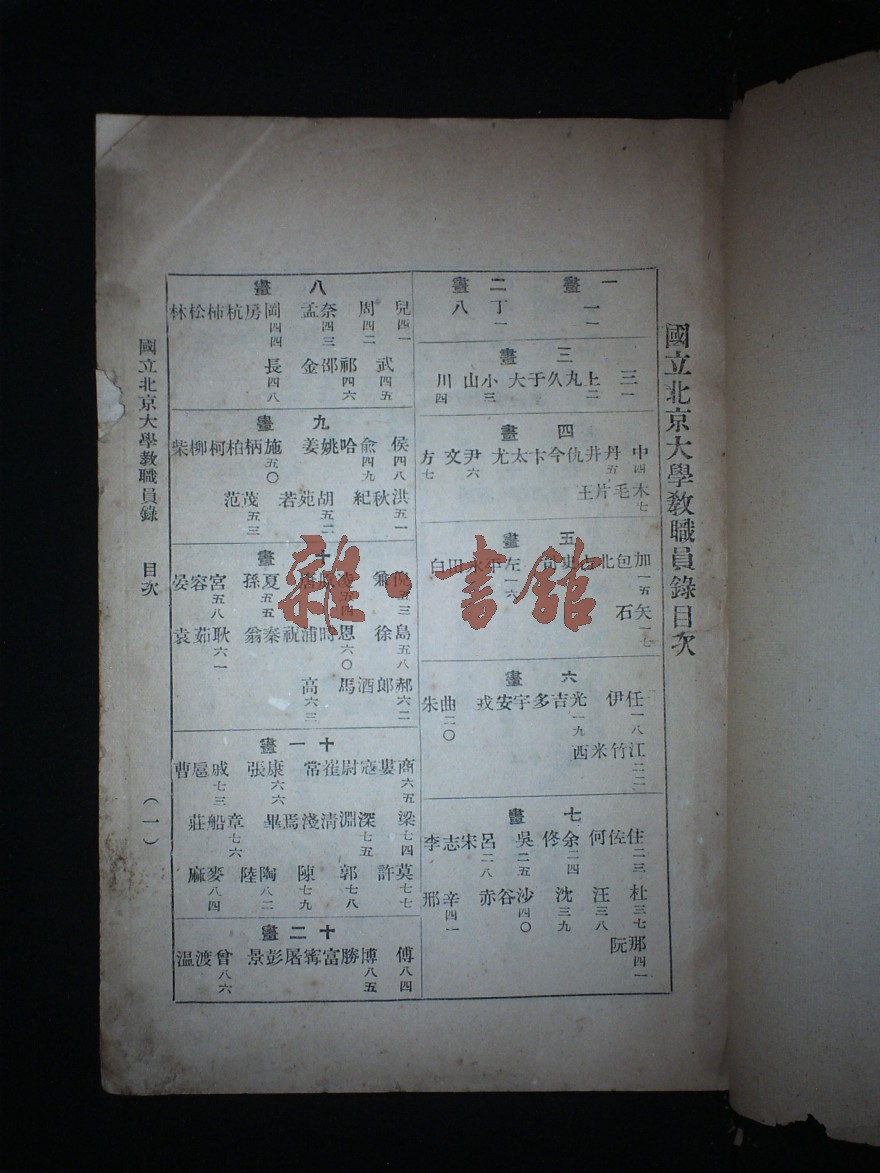 國立北京大學教職員錄目次
一畫 二畫
一 丁 八
一 一
三畫
三 上丸久于大 小山 川
一 二 三 四
四畫
中 丹井仇今卞太尤 尹文 方
四 五 六 七
木毛片王
七
五畫
加包北 左 田白
一五 一六
矢石
一七
六畫
任伊 光吉多宇安戎 曲朱
一八 一九 二〇
江竹米西
二二
七畫
住佐何 余佟 吳 呂宋志李
二三 二四 二五 二八
杜 汪 沈 沙谷赤 辛邢
三七 三八 三九 四〇 四一
那阮
四一
八畫
兒 周 奈孟 岡房杭柿松林
四一 四二 四三 四四
武 祁邵金 長
四五 四六 四八
九畫
侯 俞哈姚姜 施柄柏柯柳柴
四八 四九 五〇
洪秋紀 胡苑若 茂范
五一 五二 五三
十畫
倪兼 凌原唐 夏孫 宮容晏
五三 五四 五五 五八
島徐 恩時浦祝秦翁 耿茹袁
五八 六〇 六一
郝郎酒馬 高
六二 六三
十一畫
商婁寇尉崔常 康張 戚扈曹
六五 六六 七三
梁 深淵清淺焉畢 章船莊
七四 七五 七六
莫許 郭 陳 陶陸 麥麻
七七 七八 七九 八二 八四
十二畫
傅 博勝富甯屠彭景 曾渡温
八四 八五 八六
國立北京大學教職員錄 目次 (一)
雜·書館